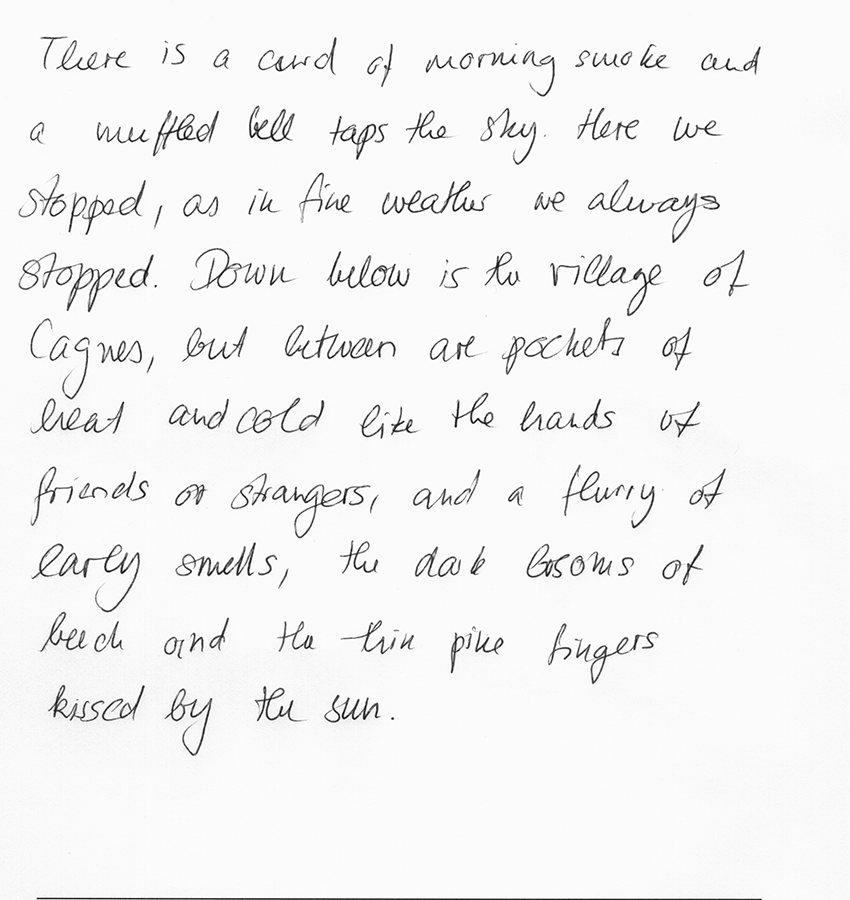 There is a curd of morning smoke and
a muffled bell taps the sky. Here we
stopped, as in fine weather we always
stopped. Down below is the village of
Cagnes, but between are pockets of
heat and cold like the hands of
friends or strangers, and a flurry of
early smells, the dark bosoms of
beech and the thin pine fingers
kissed by the sun.